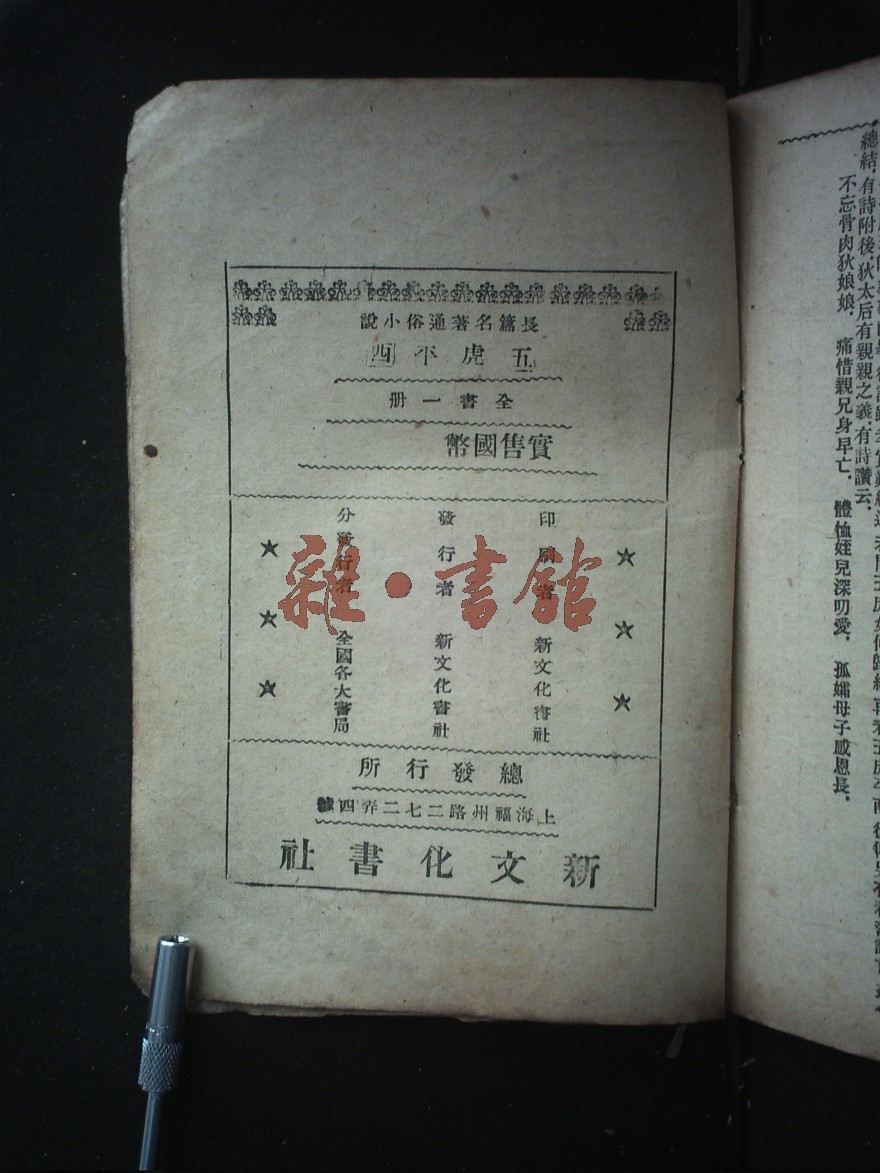 長篇名著通俗小說
五虎平西
全書一冊
實售國幣
印刷者 新文化書社
發行者 新文化書社
分發行者 全國各大書局
雜·書館
總發行所
上海福州路二七二弄四號
新文化書社
總結,有詩附後狄太后有親親之義,有詩讚云,
不忘骨肉狄娘娘, 痛惜親兄身早亡, 體恤姪兒深叨愛, 孤孀母子感恩長,